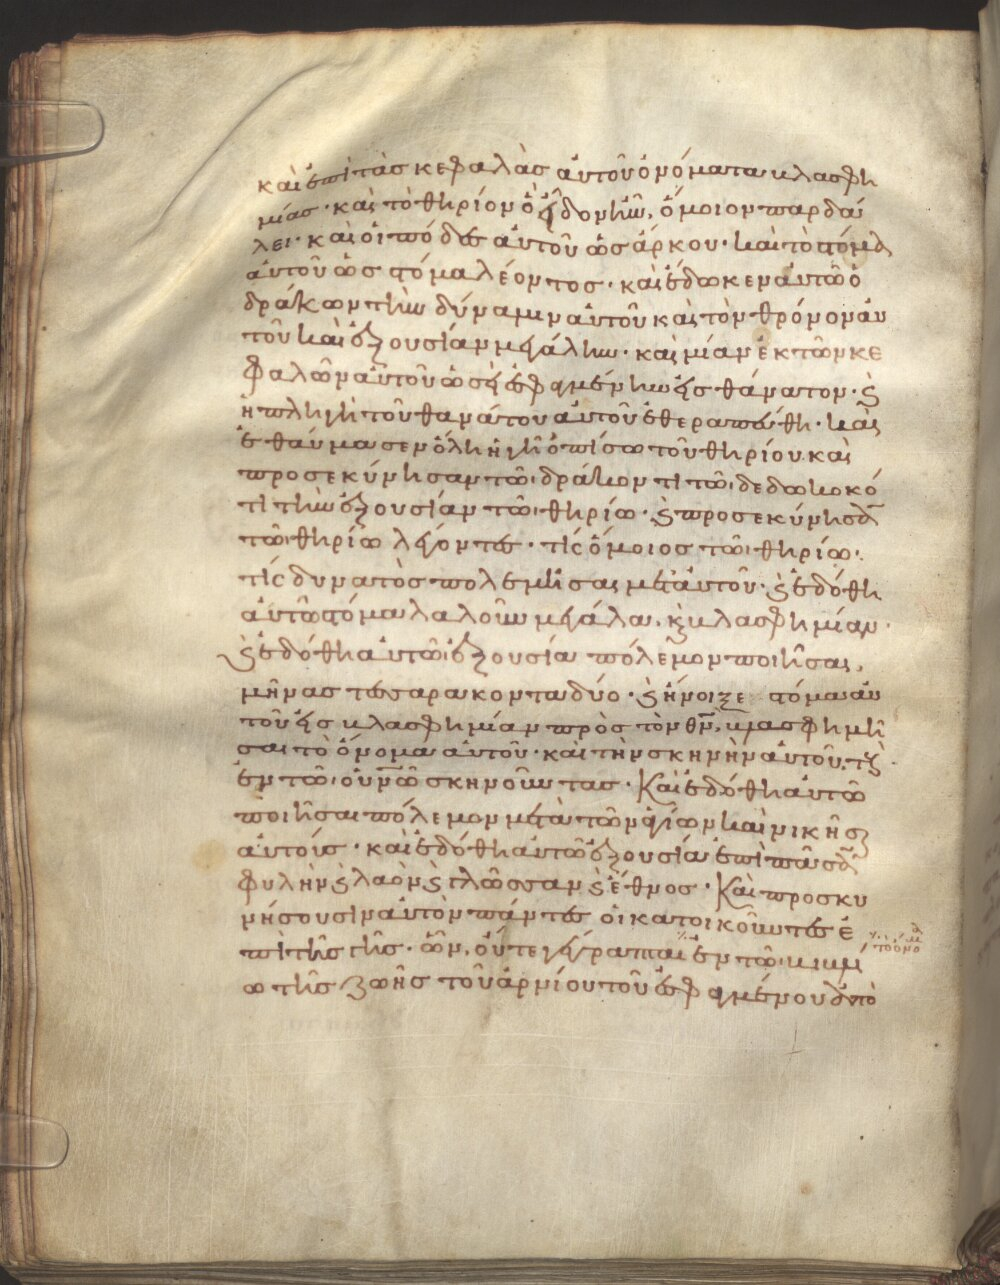 καὶ ἐπὶ τὰσ κεφαλὰσ αὐτοῦ ὀνόματα βλασφη
μίασ· καὶ τὸ θηρίον ὃ εἶδον ἦν, ὅμοιον παρδά
λει· καὶ οἱ πόδεσ αὐτοῦ ὡσ ἄρκου· καὶ τὸ στόμα
αὐτοῦ ὡσ στόμα λέοντοσ· καὶ ἔδωκεν αὐτῶ ὁ
δράκων τὴν δύναμιν αὐτοῦ καὶ τὸν θρόνον αὐ
τοῦ καὶ ἐξουσίαν μεγάλην· καὶ μίαν ἐκ τῶν κε
φαλῶν αὐτοῦ ὡσεὶ ἐσφαγμένην εἰσ θάνατον· ϗ
ἡ πληγὴ τοῦ θανάτου αὐτοῦ ἐθεραπεύθη· καὶ
ἐθαύμασεν ὅλη ἡ γῆ ὀπίσω τοῦ θηρίου καὶ
προσεκύνησαν τῶ δράκοντι τῶ δεδωκοκό
τι τὴν ἐξουσίαν τῶ θηρίω· ϗ προσεκύνησαν
τῶ θηρίω λέγοντεσ· τίς ὅμοιοσ τῶ θηρίω·
τίς δυνατὸσ πολεμῆσαι μετ' αὐτοῦ· ϗ ἐδόθη
αὐτῶ στόμα λαλοῦν μεγάλα, ϗ βλασφημίαν·
ϗ ἐδόθη αὐτῶ ἐξουσία πόλεμον ποιῆσαι,
μῆνασ τεσσαρακονταδύο· ϗ ἤνοιξε στόμα αὐ
τοῦ εἰσ βλασφημίαν πρὸσ τὸν θν̅, βλασφημῆ
σαι τὸ ὄνομα αὐτοῦ· καὶ τὴν σκηνὴν αὐτοῦ, τοὺσ
ἐν τῶ οὐν̅ῶ σκηνοῦντασ· Καὶ ἐδόθη αὐτῶ
ποιῆσαι πόλεμον μετὰ τῶν ἁγίων καὶ νικῆσαι
αὐτούσ· καὶ ἐδόθη αὐτῶ ἐξουσία ἐπὶ πᾶσαν
φυλὴν ϗ λαὸν ϗ γλῶσσαν ϗ ἔθνοσ· Καὶ προσκυ
νήσουσιν αὐτὸν πάντεσ οἱ κατοικοῦντεσ ἐ
πὶ τῆσ γῆσ· ὧν, οὔτε γέγραπται ἐν τῶ βιβλί
τὸ ὄνομα
ω τῆσ ζωῆσ τοῦ ἀρνίου τοῦ ἐσφαγμένου ἀπὸ